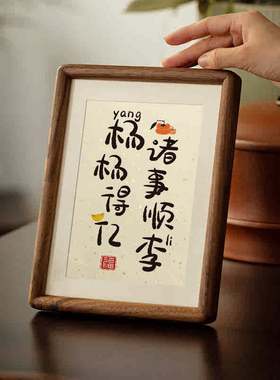 诸事顺李
yang
杨杨得亿
福